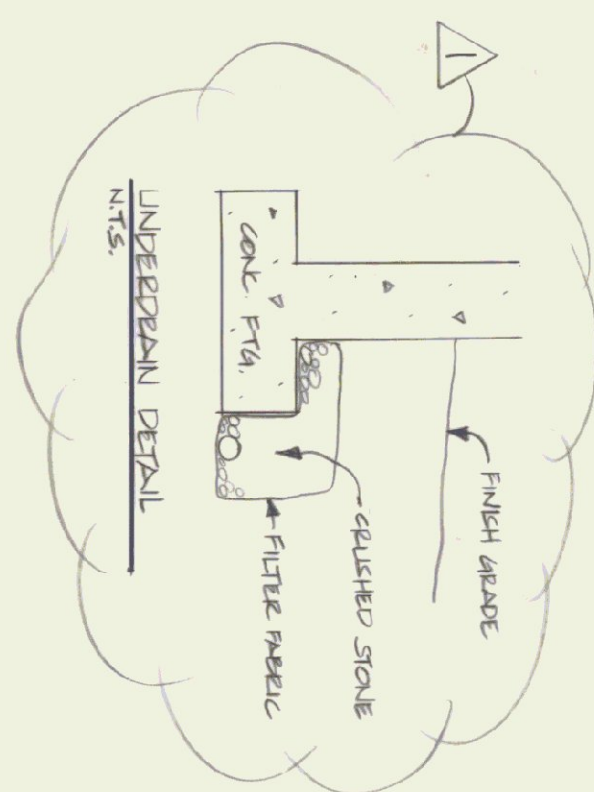 1
FINISH GRADE
CRUSHED STONE
FILTER FABRIC
CONC. FTG.
UNDERDRAIN DETAIL
N.T.S.